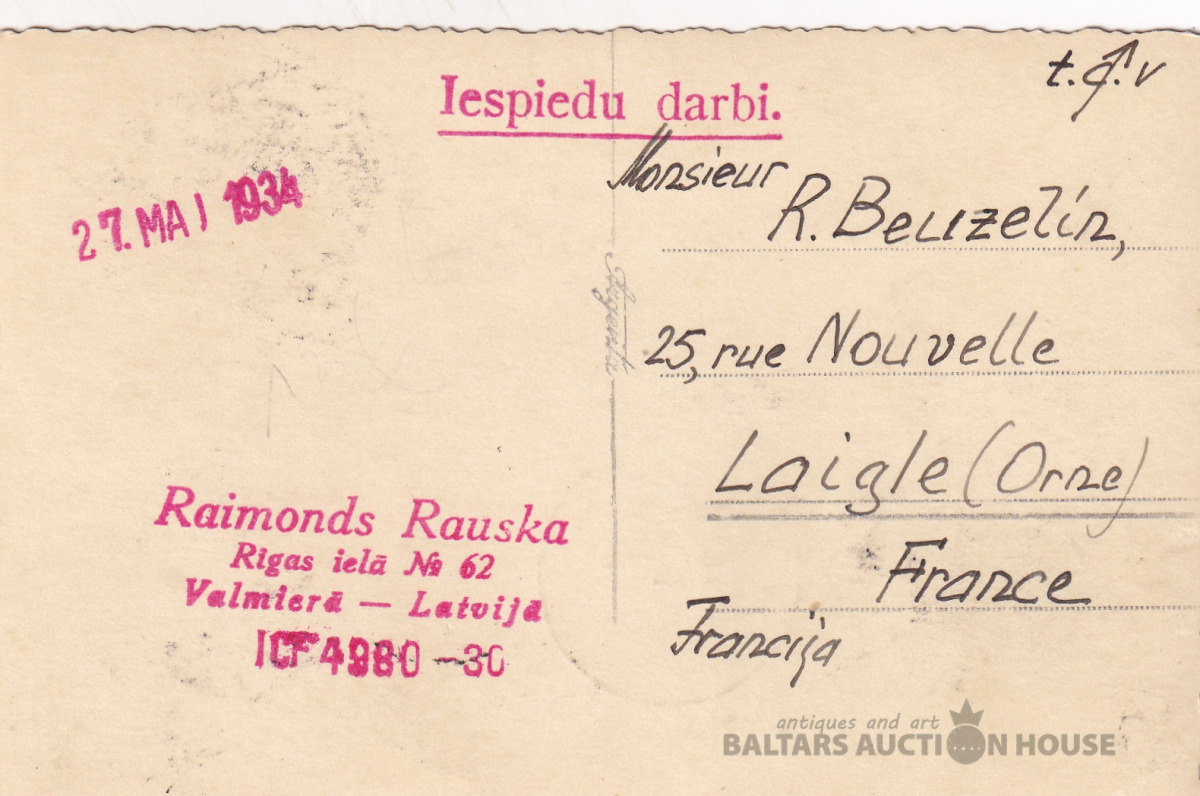 Iespiedu darbi.
t.c.v
27. MAI 1934
Monsieur
R. Beuzelin,
25, rue Nouvelle
Laigle (Orne)
France
Francija
Raimonds Rauska
Rīgas ielā № 62
Valmierā — Latvijā
ICF 4980 -30
antiques and art
BALTARS AUCTION HOUSE